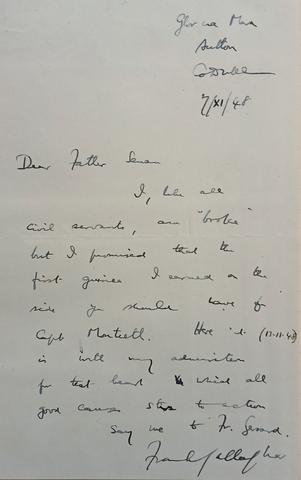 Glór na Mara
Sutton
Co Dublin
7/XI/48
Dear Father Senan
I, like all
civil servants, am "broke"
but I promised that the
first guinea I earned on the
side you should have for
Capt Monteith. Here it (17-11-48)
is with my admiration
for that heart which all
good causes stir to action
Say me to Fr. Gerard.
Frank Gallagher